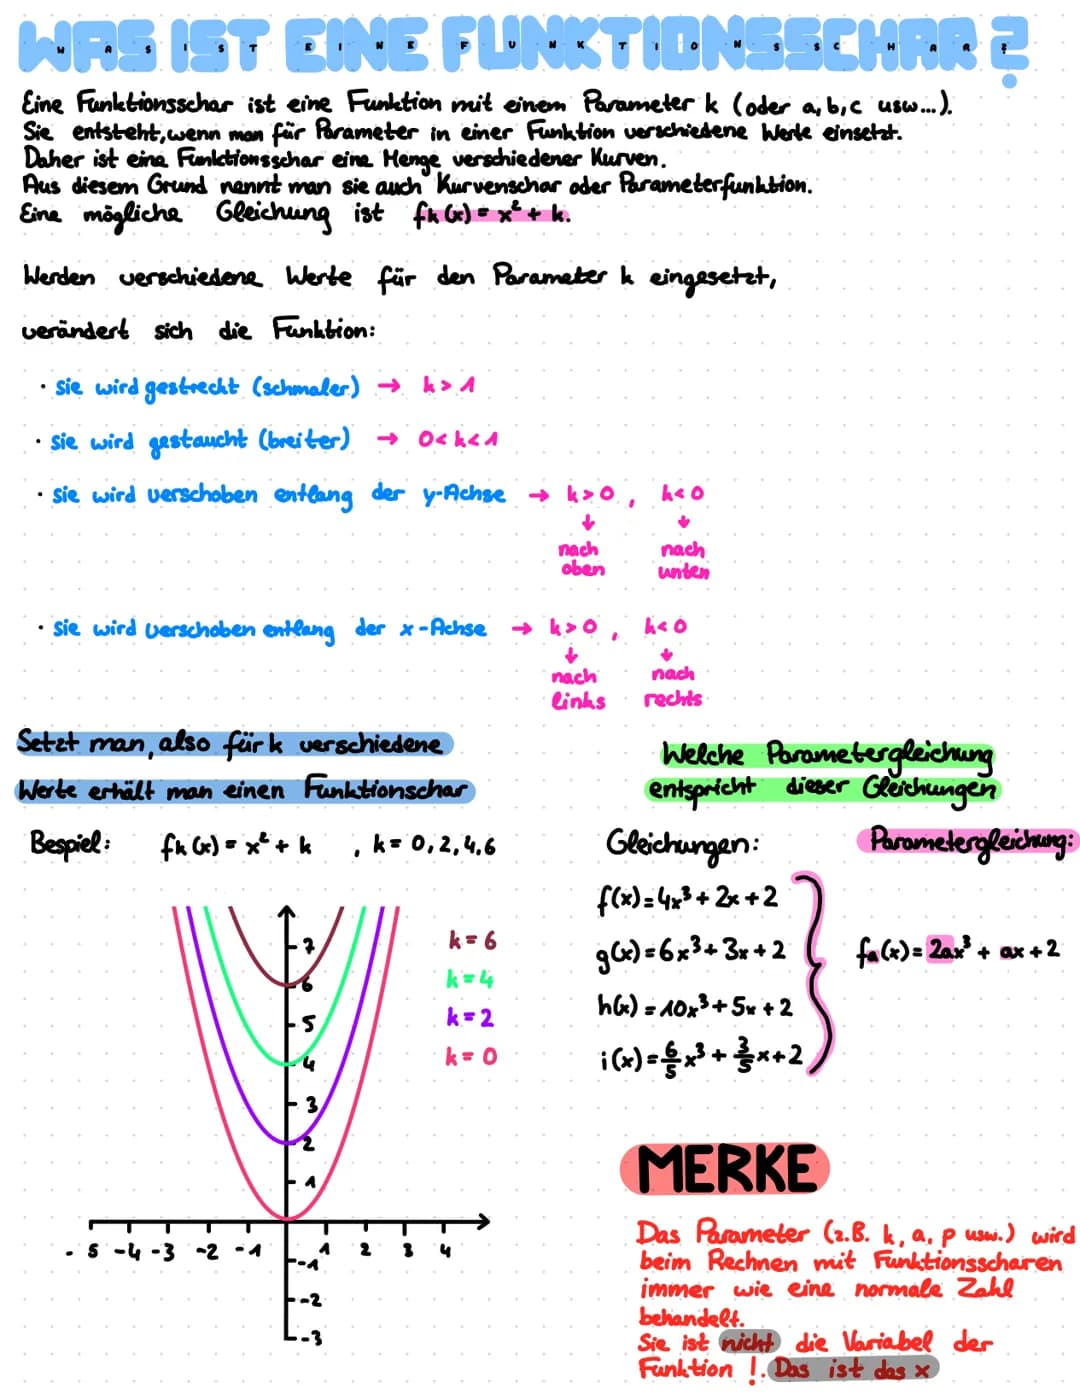 WAS IST EINE FUNKTIONSSCHAR?
Eine Funktionsschar ist eine Funktion mit einem Parameter k (oder a, b, c usw...).
Sie entsteht, wenn man für Parameter in einer Funktion verschiedene Werte einsetzt.
Daher ist eine Funktionsschar eine Menge verschiedener Kurven.
Aus diesem Grund nennt man sie auch Kurvenschar oder Parameterfunktion.
Eine mögliche Gleichung ist fk(x) = x² + k.
Werden verschiedene Werte für den Parameter k eingesetzt,
verändert sich die Funktion:
· sie wird gestreckt (schmaler) → k > 1
· sie wird gestaucht (breiter) → 0 < k < 1
· sie wird verschoben entlang der y-Achse → k > 0 , k < 0
↓ ↓
nach nach
oben unten
· sie wird verschoben entlang der x-Achse → k > 0 , k < 0
↓ ↓
nach nach
links rechts
Setzt man, also für k verschiedene
Werte erhält man einen Funktionschar
Bespiel: fk(x) = x² + k , k = 0, 2, 4, 6
7
6
5
4
3
2
1
-5 -4 -3 -2 -1 1 2 3 4
-1
-2
-3
k = 6
k = 4
k = 2
k = 0
Welche Parametergleichung
entspricht dieser Gleichungen
Gleichungen: Parametergleichung:
f(x) = 4x³ + 2x + 2
g(x) = 6x³ + 3x + 2
fa(x) = 2ax³ + ax + 2
h(x) = 10x³ + 5x + 2
i(x) = 6/5 x³ + 3/5 x + 2
MERKE
Das Parameter (z.B. k, a, p usw.) wird
beim Rechnen mit Funktionsscharen
immer wie eine normale Zahl
behandelt.
Sie ist nicht die Variabel der
Funktion !. Das ist das x